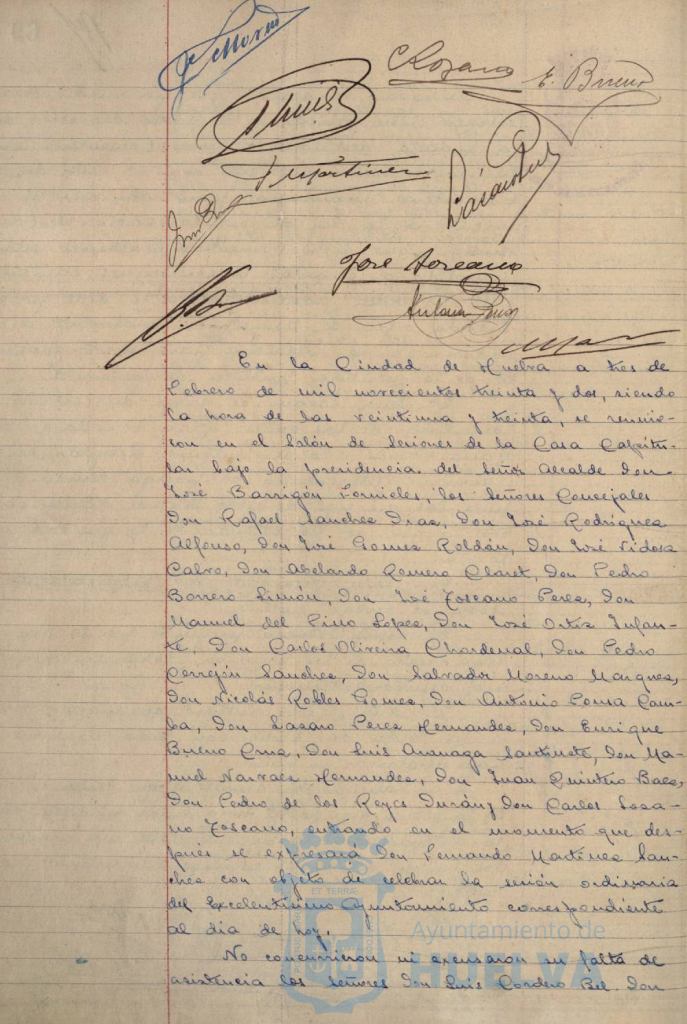 C Lozano
E. Bueno
T Martinez
Lázaro Perez
José Toscano
En la Ciudad de Huelva a tres de
Febrero de mil novecientos treinta y dos, siendo
la hora de las veintiuna y treinta, se reunie-
ron en el Salón de Sesiones de la Casa Capitu-
lar bajo la presidencia del Señor Alcalde Don
José Barrigón Fornieles, los Señores Concejales
Don Rafael Sanchez Diaz, Don José Rodriguez
Alfonso, Don José Gomez Roldán, Don José Vidosa
Calvo, Don Abelardo Romero Claret, Don Pedro
Borrero Limón, Don José Toscano Perez, Don
Manuel del Pino Lopez, Don José Ortiz Infan-
te, Don Carlos Oliveira Chardenal, Don Pedro
Cerrejón Sanchez, Don Salvador Moreno Marquez,
Don Nicolás Robles Gomez, Don Antonio Poma Cam-
ba, Don Lazaro Perez Hernandez, Don Enrique
Bueno Cruz, Don Luis Aranaga Santurte, Don Ma-
nuel Narvaez Hernandez, Don Juan Quintero Baez,
Don Pedro de los Reyes Durán y Don Carlos Loza-
no Toscano, entrando en el momento que des-
pués se expresará Don Fernando Martinez San-
chez con objeto de celebrar la sesión ordinaria
del Excelentísimo Ayuntamiento correspondiente
al dia de hoy.
Ayuntamiento de
HUELVA
No concurrieron ni excusaron su falta de
asistencia los señores Don Luis Cordero Bel, Don